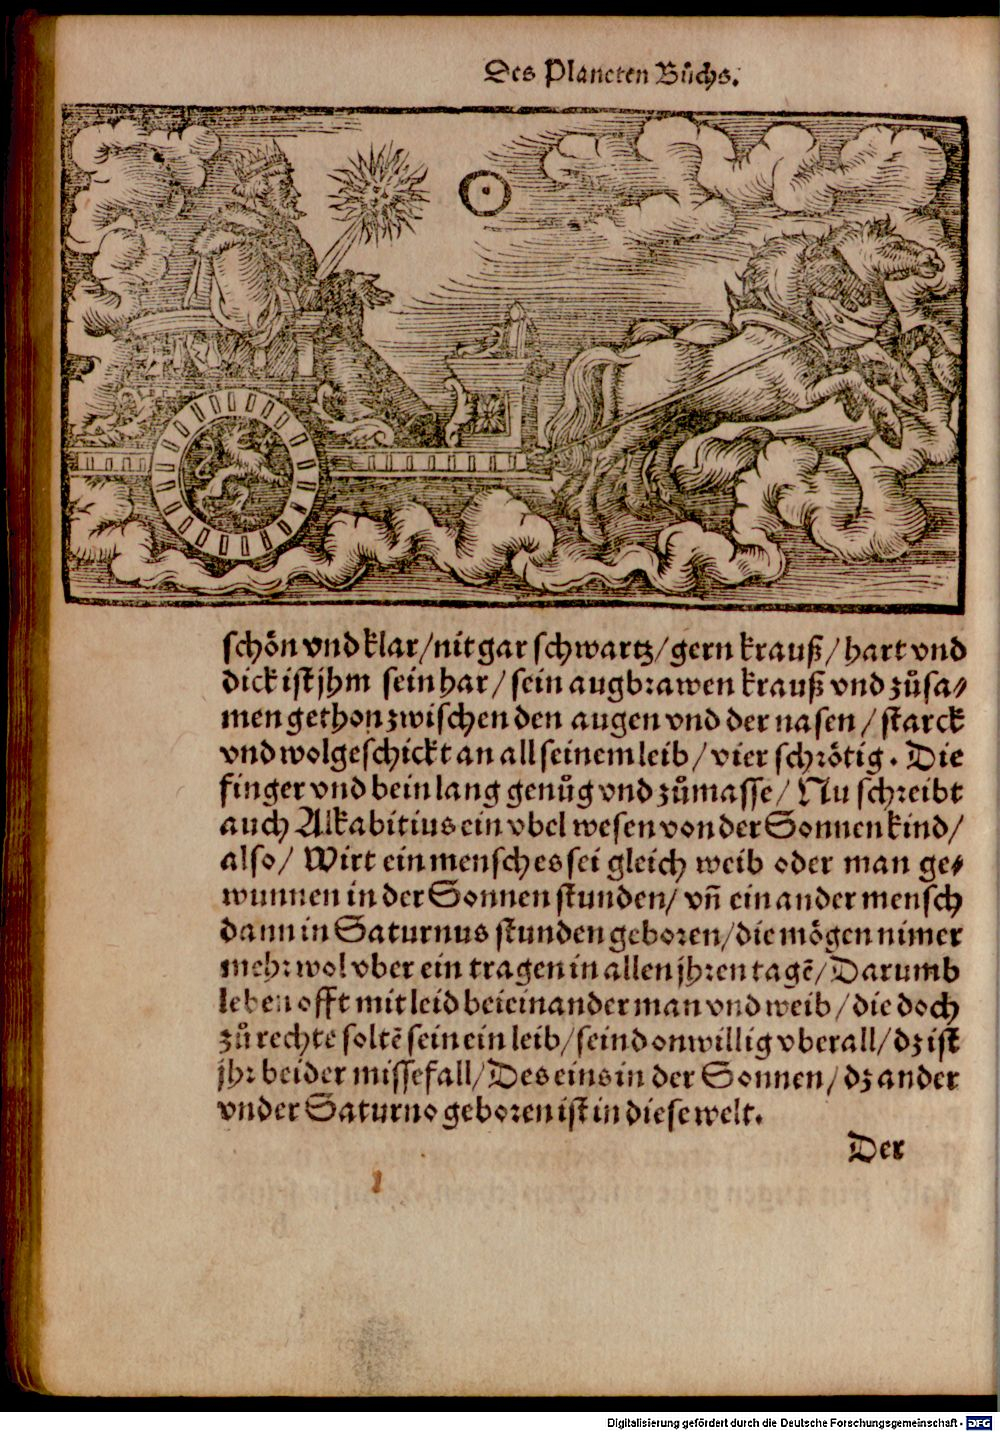 Des Planeten Bůchs.
schoͤn vnd klar/nit gar schwartz/gern krauß/hart vnd
dick ist jhm sein har/sein augbrawen krauß vnd zůsa⸗
men gethon zwischen den augen vnd der nasen/starck
vnd wolgeschickt an all seinem leib/vier schroͤtig. Die
finger vnd bein lang genůg vnd zůmasse/Nu schreibt
auch Alkabitius ein vbel wesen von der Sonnen kind/
also/Wirt ein mensch es sei gleich weib oder man ge⸗
wunnen in der Sonnen stunden/vñ ein ander mensch
dann in Saturnus stunden geboren/die moͤgen nimer
mehr wol vber ein tragen in allen jhren tagẽ/Darumb
leben offt mit leid beieinander man vnd weib/die doch
zů rechte soltẽ sein ein leib/seind onwillig vberall/dz ist
jhr beider missefall/Des eins in der Sonnen/dz ander
vnder Saturno geboren ist in diese welt.
Der
Digitalisierung gefördert durch die Deutsche Forschungsgemeinschaft - DFG